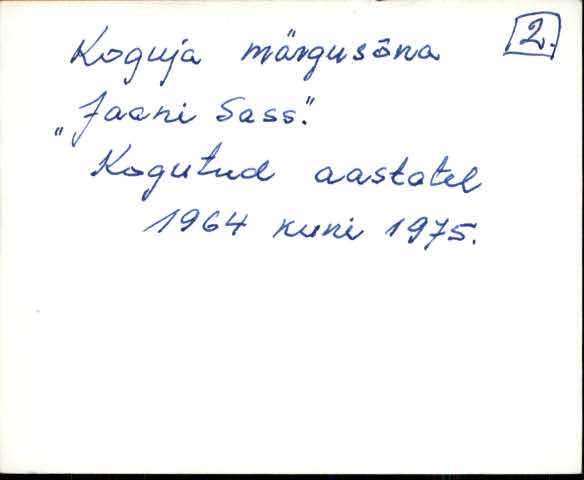 Koguja märgusõna 2.
„Jaani Sass."
Kogutud aastatel
1964 kuni 1975.